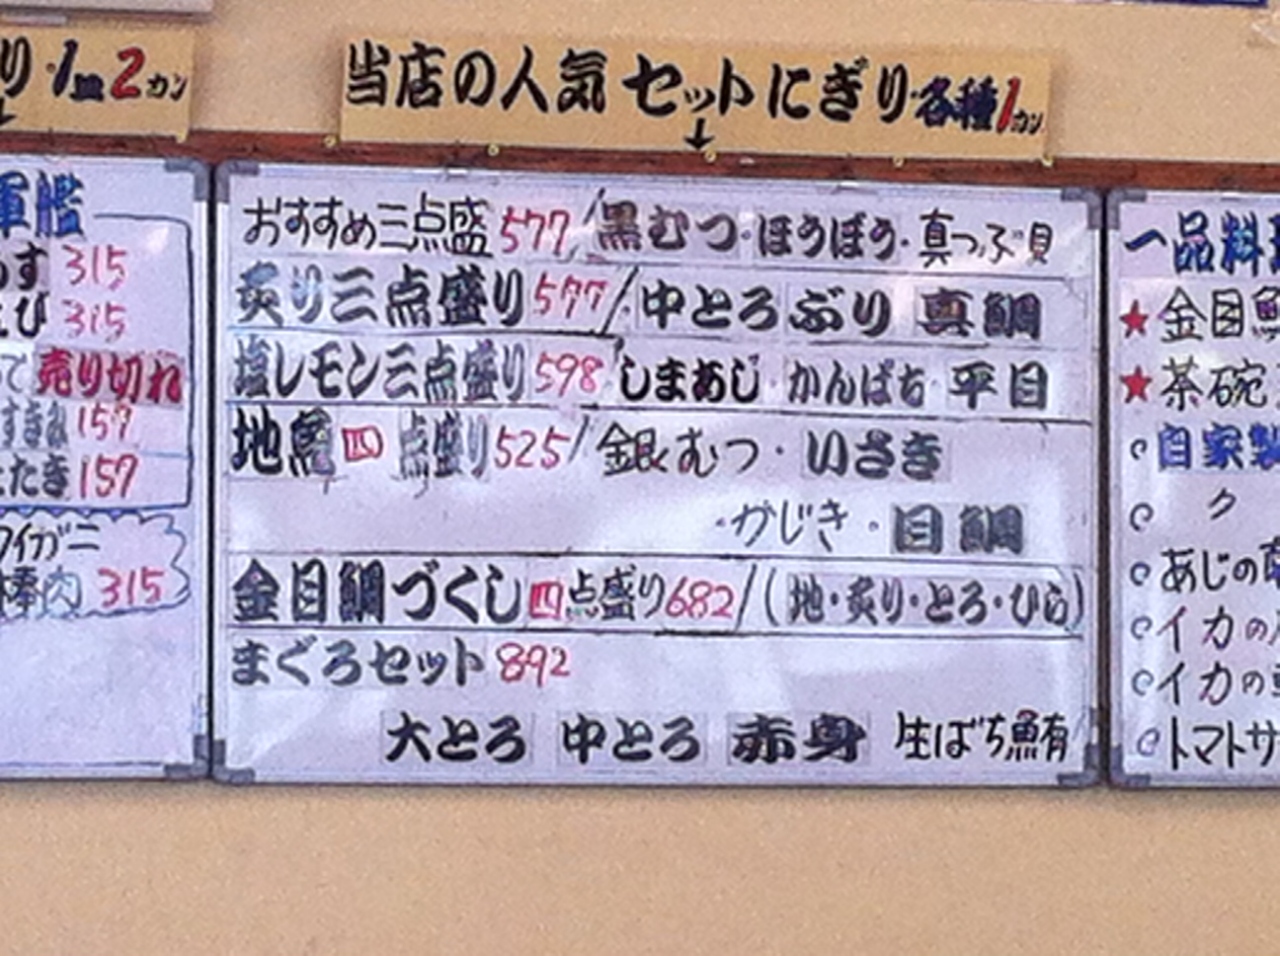 り・1皿2カン
当店の人気セットにぎり・各種1カン
↓
軍艦
315
315
売り切れ
157
たたき157
ワイガニ
棒肉 315
おすすめ三点盛 577/黒むつ・ほうぼう・真つぶ貝
炙り三点盛り577/中とろ ぶり 真鯛
塩レモン三点盛り598/しまあじ・かんぱち・平目
地魚四点盛り525/銀むつ・いさき
・かじき・目鯛
金目鯛づくし四点盛り682/(地・炙り・とろ・ひら)
まぐろセット892
大とろ 中とろ 赤身 生ばち鮪
一品料理
★金目
★茶碗
自家製
ク
あじの
イカの
イカの
トマトサ